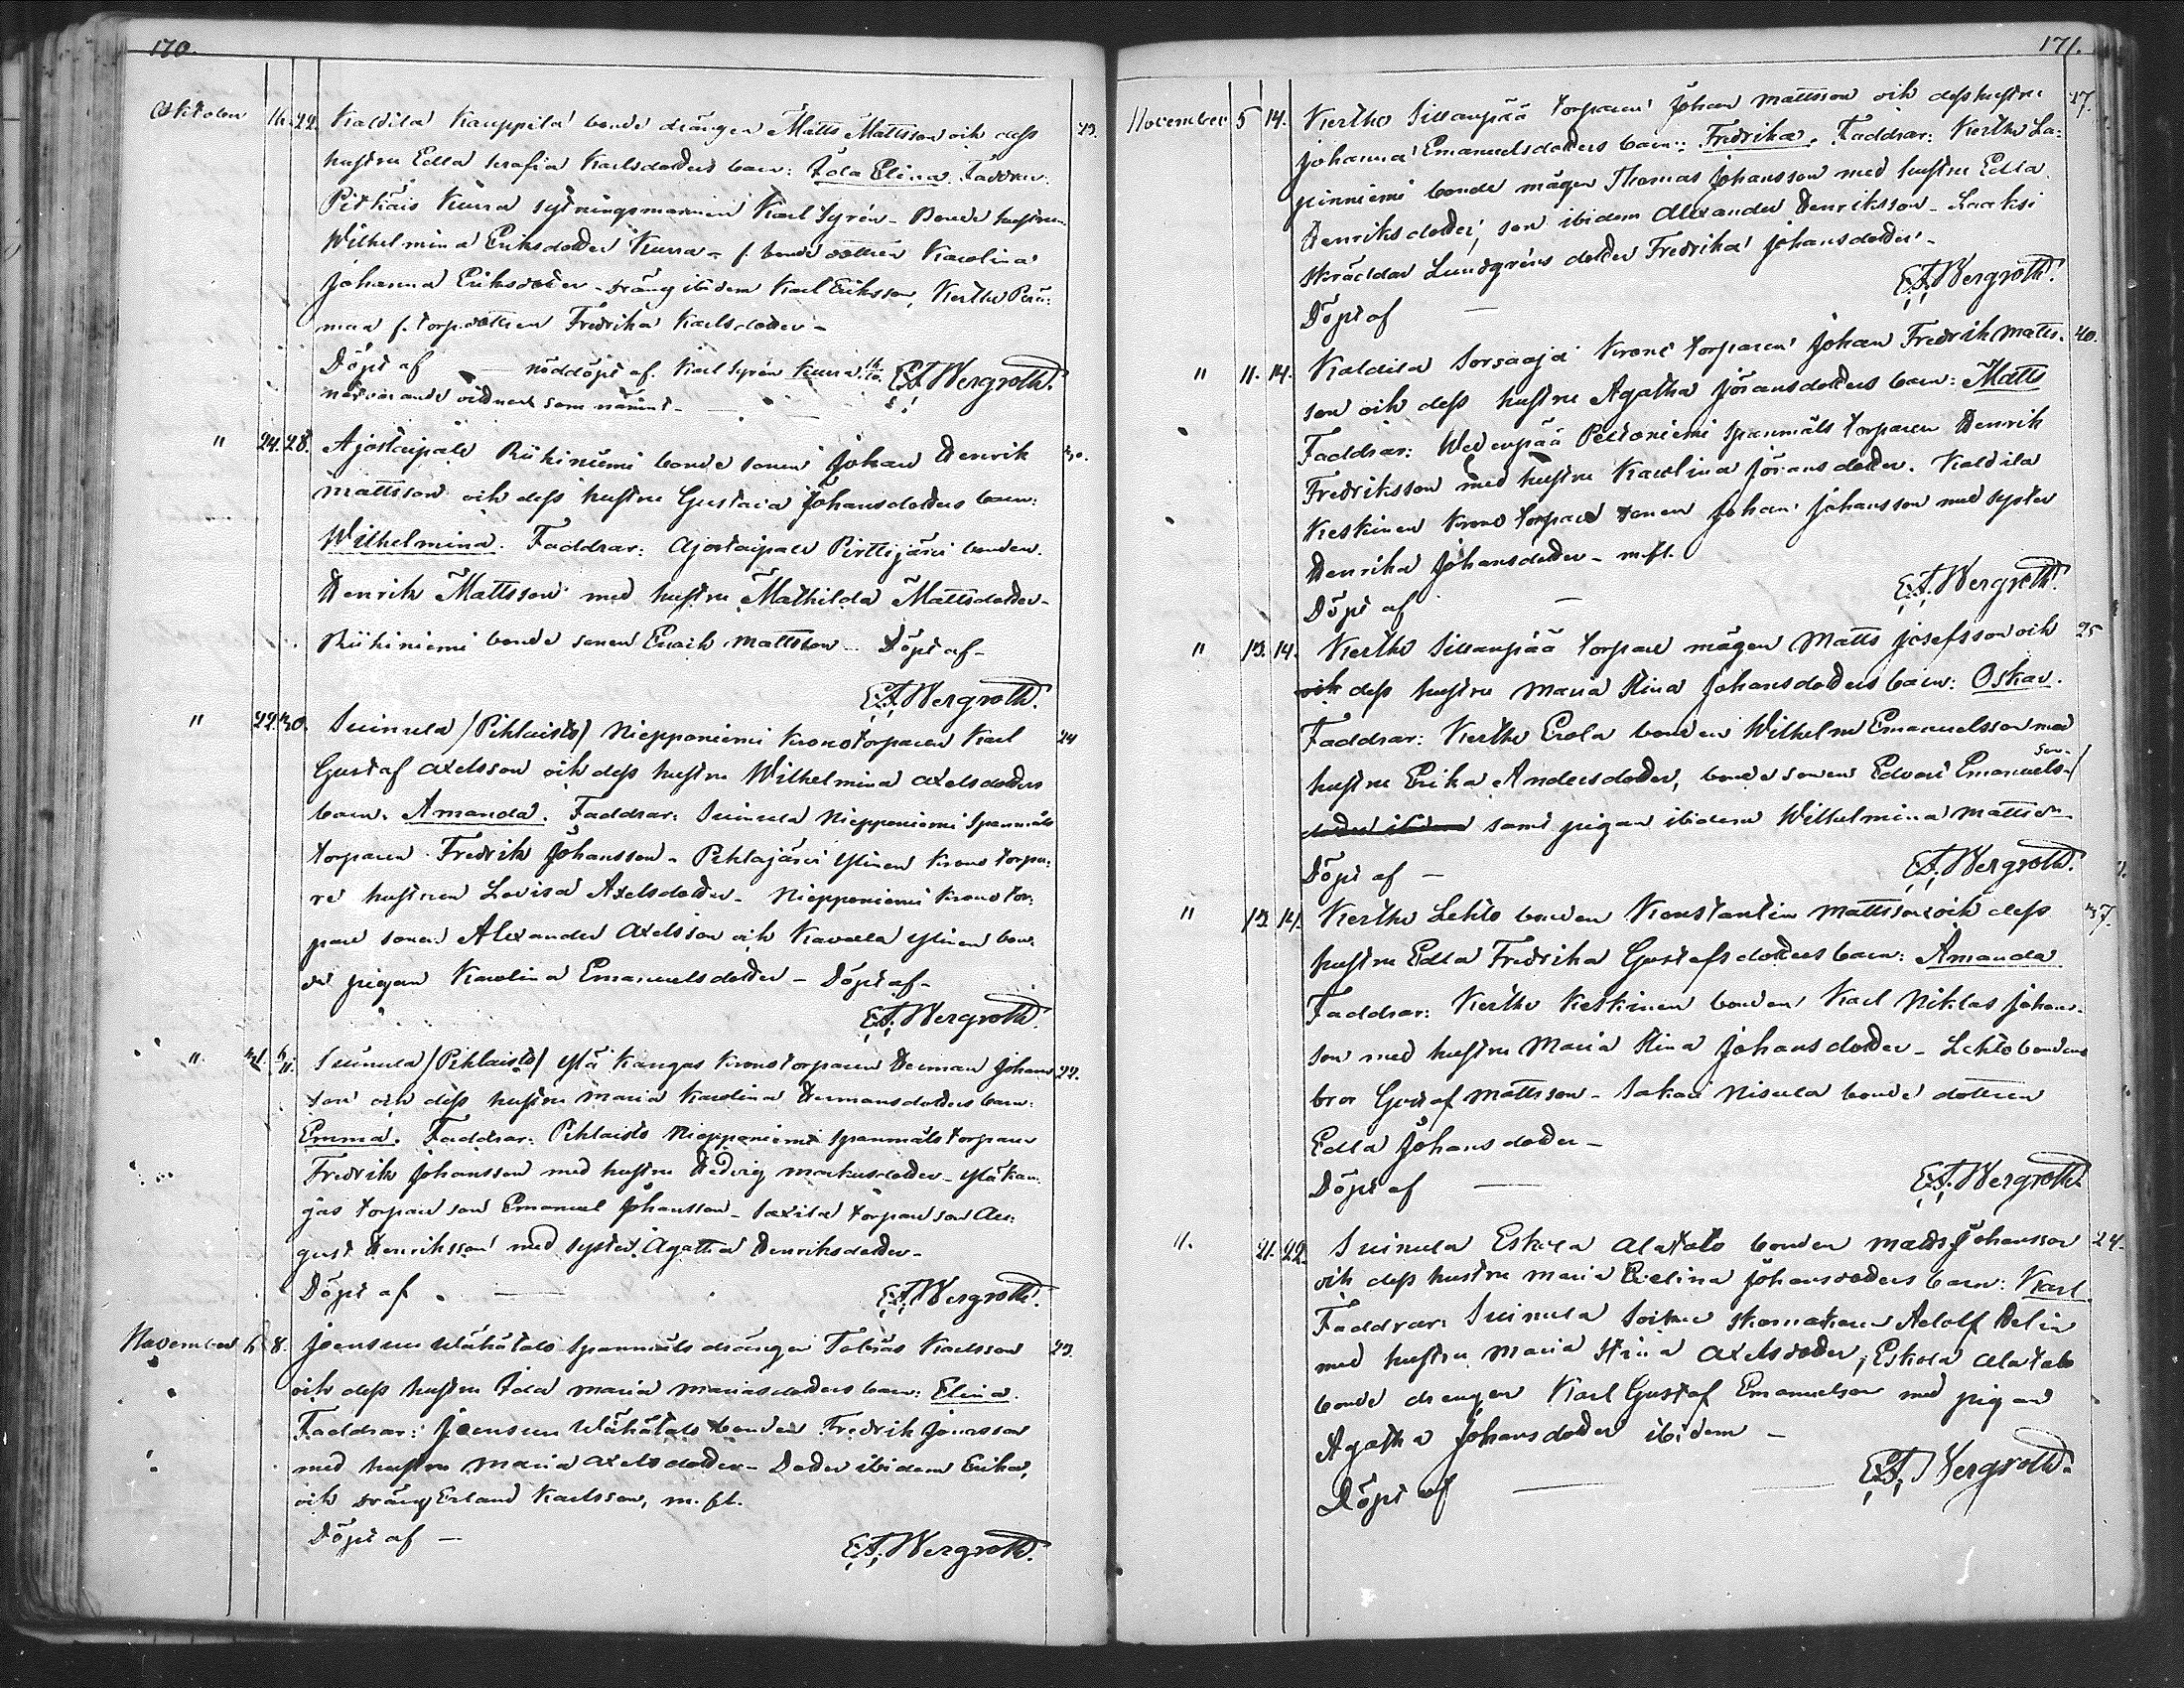 170.
Oktober 16. 22. Kaldila Kauppila bonde drängen Matts Mattsson och dess 23.
hustru Edla Serafia Karlsdotters barn: Ida Elina. Faddrar:
Pitkäis Kuura sytningsmannen Karl Syrén - Bonde hustrun
Wilhelmina Eriksdotter Kuura - f. bonde dottren Karolina
Johanna Eriksdotter - dräng ibidem Karl Eriksson, Kertto
maa f. torp dottren Fredrika Karlsdotter -
Döpt af — nöddöpt af. Karl Syrén Kuura 16/10. E.F. Bergroth.
närvarande vittnen som nämnt -
" 24. 28. Ajostaipale Riihiniemi bonde sonen Johan Henrik 30.
Mattsson och dess hustru Gustava Johansdotters barn:
Wilhelmina. Faddrar: Ajostaipale Pirttijärvi bonden
Henrik Mattsson med hustru Mathilda Mattsdotter -
Riihiniemi bonde sonen Enoch Mattsson - Döpt af -
E.F. Bergroth.
" 22. 30. Suinula /Pihlaisto/ Niepponiemi Kronotorparen Karl 24
Gustaf Axelsson och dess hustru Wilhelmina Axelsdotters
barn: Amanda. Faddrar: Suinula Niepponiemi Spannmåls
torparen Fredrik Johansson - Pihlajärvi Ylinen Krono torpa-
re hustrun Lovisa Axelsdotter - Niepponiemi Krono tor-
pare sonen Alexander Axelsson och Kavala Ylinen bon-
de pigan Karolina Emanuelsdotter - Döpt af -
E.F. Bergroth.
" 31. 6/11. Suinula /Pihlaisto/ Ylä Kangas Kronotorparen Herman Johans 22.
son och dess hustru Maria Karolina Hermansdotters barn:
Emma. Faddrar: Pihlaisto Niepponiemi Spannmåls torparen
Fredrik Johansson med hustru Hedvig Markusdotter - Ylä Kan-
gas torpare son Emanuel Johansson - Saxila torpare son Au-
gust Henriksson med syster Agatha Henriksdotter -
Döpt af — E.F. Bergroth.
November 6 8. Joensuu Wähätalo Spannmåls drängen Tobias Karlsson 23.
och dess hustru Ida Maria Mariasdotters barn: Elina.
Faddrar: Joensuu Wähätalo bonden Fredrik Jonasson
med hustru Maria Axelsdotter - Dotter ibidem Erika,
och dräng Erland Karlsson, m. fl.
Döpt af —
E.F. Bergroth.
171.
November 5 14. Kertto Sillanpää torparen Johan Mattsson och dess hustru 37.
Johanna Emanuelsdotters barn: Fredrika. Faddrar: Kertto La-
pinniemi bonde mågen Thomas Johansson med hustru Edla
Henriksdotter, son ibidem Alexander Henriksson - Laaksi
skräddar Lundgréns dotter Fredrika Johansdotter -
Döpt af — E.F. Bergroth.
" 11. 14. Kaldila Sorsaaja Krono torparen Johan Fredrik Matts- 40.
son och dess hustru Agatha Jöransdotters barn: Matts
Faddrar: Wedenpää Peltoniemi Spanmåls torparen Henrik
Fredriksson med hustru Karolina Jöransdotter. Kaldila
Keskinen Krono torpare sonen Johan Johansson med syster
Henrika Johansdotter - m.fl.
Döpt af — E.F. Bergroth.
" 13. 14. Kertto Sillanpää torpare mågen Matts Josefsson och 25
och dess hustru Maria Stina Johansdotters barn: Oskar.
Faddrar: Kertto Erola bonden Wilhelm Emanuelsson med
hustru Erika Andersdotter, bonde sonen Edvard Emanuels-
son -/
dotter ibidem samt pigan ibidem Wilhelmina Mattsdr
Döpt af — E.F. Bergroth.
" 13. 14. Kertto Lehto bonden Konstantin Mattsson och dess 37.
hustru Edla Fredrika Gustafsdotters barn: Amanda
Faddrar: Kertto Keskinen bonden Karl Niklas Johans-
son med hustru Maria Stina Johansdotter - Lehto bondens
bror Gustaf Mattsson - Sakari Nisula bonde dottren
Edla Johansdotter -
Döpt af — E.F. Bergroth.
". 21. 22. Suinula Eskola Alatalo bonden Matts Johansson 24.
och dess hustru Maria Evelina Johansdotters barn: Karl.
Faddrar: Suinula skomakaren Adolf Helin
med hustru Maria Stina Axelsdotter, Eskola Alatalo
bonde drengen Karl Gustaf Emanuelson med pigan
Agatha Johansdotter ibidem -
Döpt af — E.F. Bergroth.